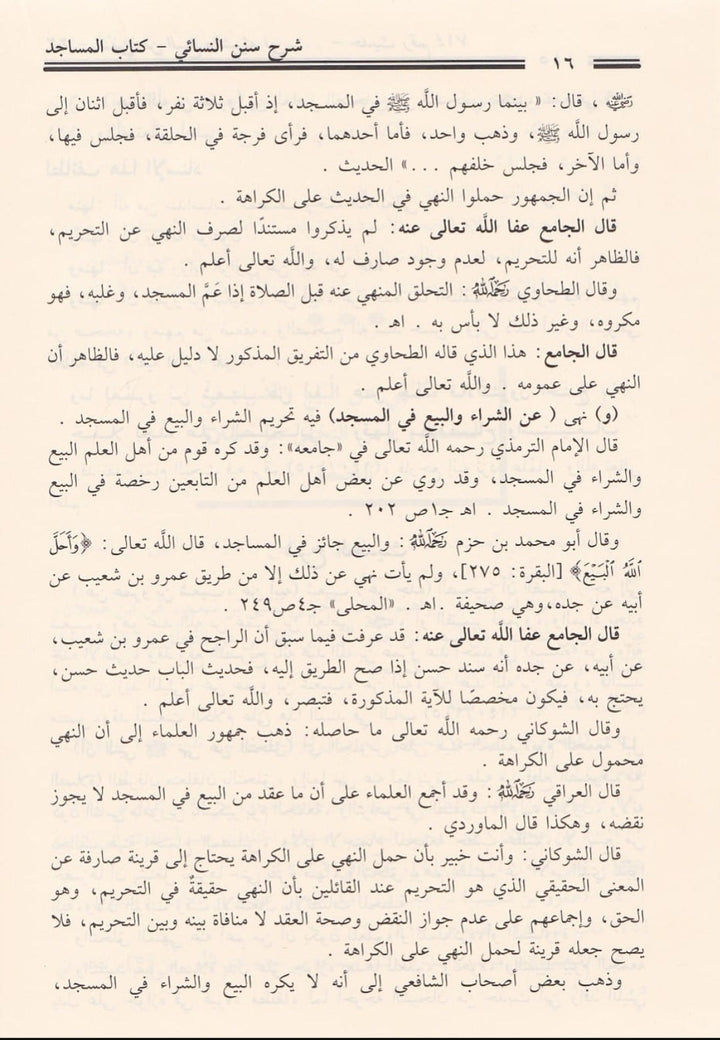 شرح سنن النسائي - كتاب المساجد
١٦
رضي الله عنه ، قال: « بينما رسول اللَّه ﷺ في المسجد، إذ أقبل ثلاثة نفر، فأقبل اثنان إلى
رسول اللَّه ﷺ، وذهب واحد، فأما أحدهما، فرأى فرجة في الحلقة، فجلس فيها،
وأما الآخر، فجلس خلفهم ...» الحديث .
ثم إن الجمهور حملوا النهي في الحديث على الكراهة .
قال الجامع عفا اللَّه تعالى عنه: لم يذكروا مستندًا لصرف النهي عن التحريم،
فالظاهر أنه للتحريم، لعدم وجود صارف له، واللَّه تعالى أعلم .
وقال الطحاوي رَحِمَهُ اللَّهُ : التحلق المنهي عنه قبل الصلاة إذا عَمَّ المسجد، وغلبه، فهو
مكروه، وغير ذلك لا بأس به . اهـ .
قال الجامع: هذا الذي قاله الطحاوي من التفريق المذكور لا دليل عليه، فالظاهر أن
النهي على عمومه . واللَّه تعالى أعلم .
(و) نهى ( عن الشراء والبيع في المسجد) فيه تحريم الشراء والبيع في المسجد .
قال الإمام الترمذي رحمه اللَّه تعالى في «جامعه»: وقد كره قوم من أهل العلم البيع
والشراء في المسجد، وقد روي عن بعض أهل العلم من التابعين رخصة في البيع
والشراء في المسجد . اهـ جـ١ص ٢٠٢ .
وقال أبو محمد بن حزم رَحِمَهُ اللَّهُ : والبيع جائز في المساجد، قال اللَّه تعالى: ﴿وَأَحَلَّ
اللَّهُ الْبَيْعَ﴾ [البقرة: ٢٧٥]، ولم يأت نهي عن ذلك إلا من طريق عمرو بن شعيب عن
أبيه عن جده،وهي صحيفة .اهـ . «المحلى» جـ٤ص٢٤٩ .
قال الجامع عفا اللَّه تعالى عنه: قد عرفت فيما سبق أن الراجح في عمرو بن شعيب،
عن أبيه، عن جده أنه سند حسن إذا صح الطريق إليه، فحديث الباب حديث حسن،
يحتج به، فيكون مخصصًا للآية المذكورة، فتبصر، واللَّه تعالى أعلم .
وقال الشوكاني رحمه اللَّه تعالى ما حاصله: ذهب جمهور العلماء إلى أن النهي
محمول على الكراهة .
قال العراقي رَحِمَهُ اللَّهُ : وقد أجمع العلماء على أن ما عقد من البيع في المسجد لا يجوز
نقضه، وهكذا قال الماوردي .
قال الشوكاني: وأنت خبير بأن حمل النهي على الكراهة يحتاج إلى قرينة صارفة عن
المعنى الحقيقي الذي هو التحريم عند القائلين بأن النهي حقيقةٌ في التحريم، وهو
الحق، وإجماعهم على عدم جواز النقض وصحة العقد لا منافاة بينه وبين التحريم، فلا
يصح جعله قرينة لحمل النهي على الكراهة .
وذهب بعض أصحاب الشافعي إلى أنه لا يكره البيع والشراء في المسجد،